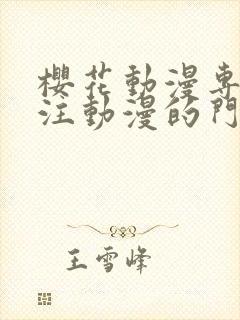 櫻花動漫專
注動漫的門
王雪峰